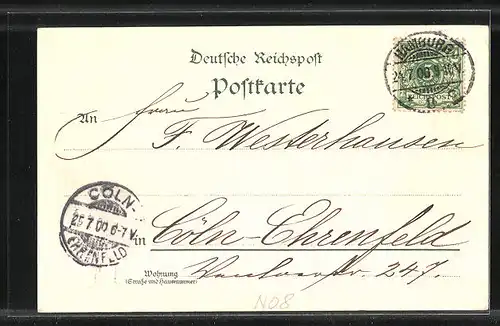 Deutsche Reichspost
Postkarte
HAMBURG
24.7.00
REICHSPOST
An Herrn
F. Westerhausen
CÖLN-
25.7.00.6-7V.
EHRENFELD
in Cöln-Ehrenfeld
Wohnung
(Straße und Hausnummer)
Venloerstr. 247.
N08